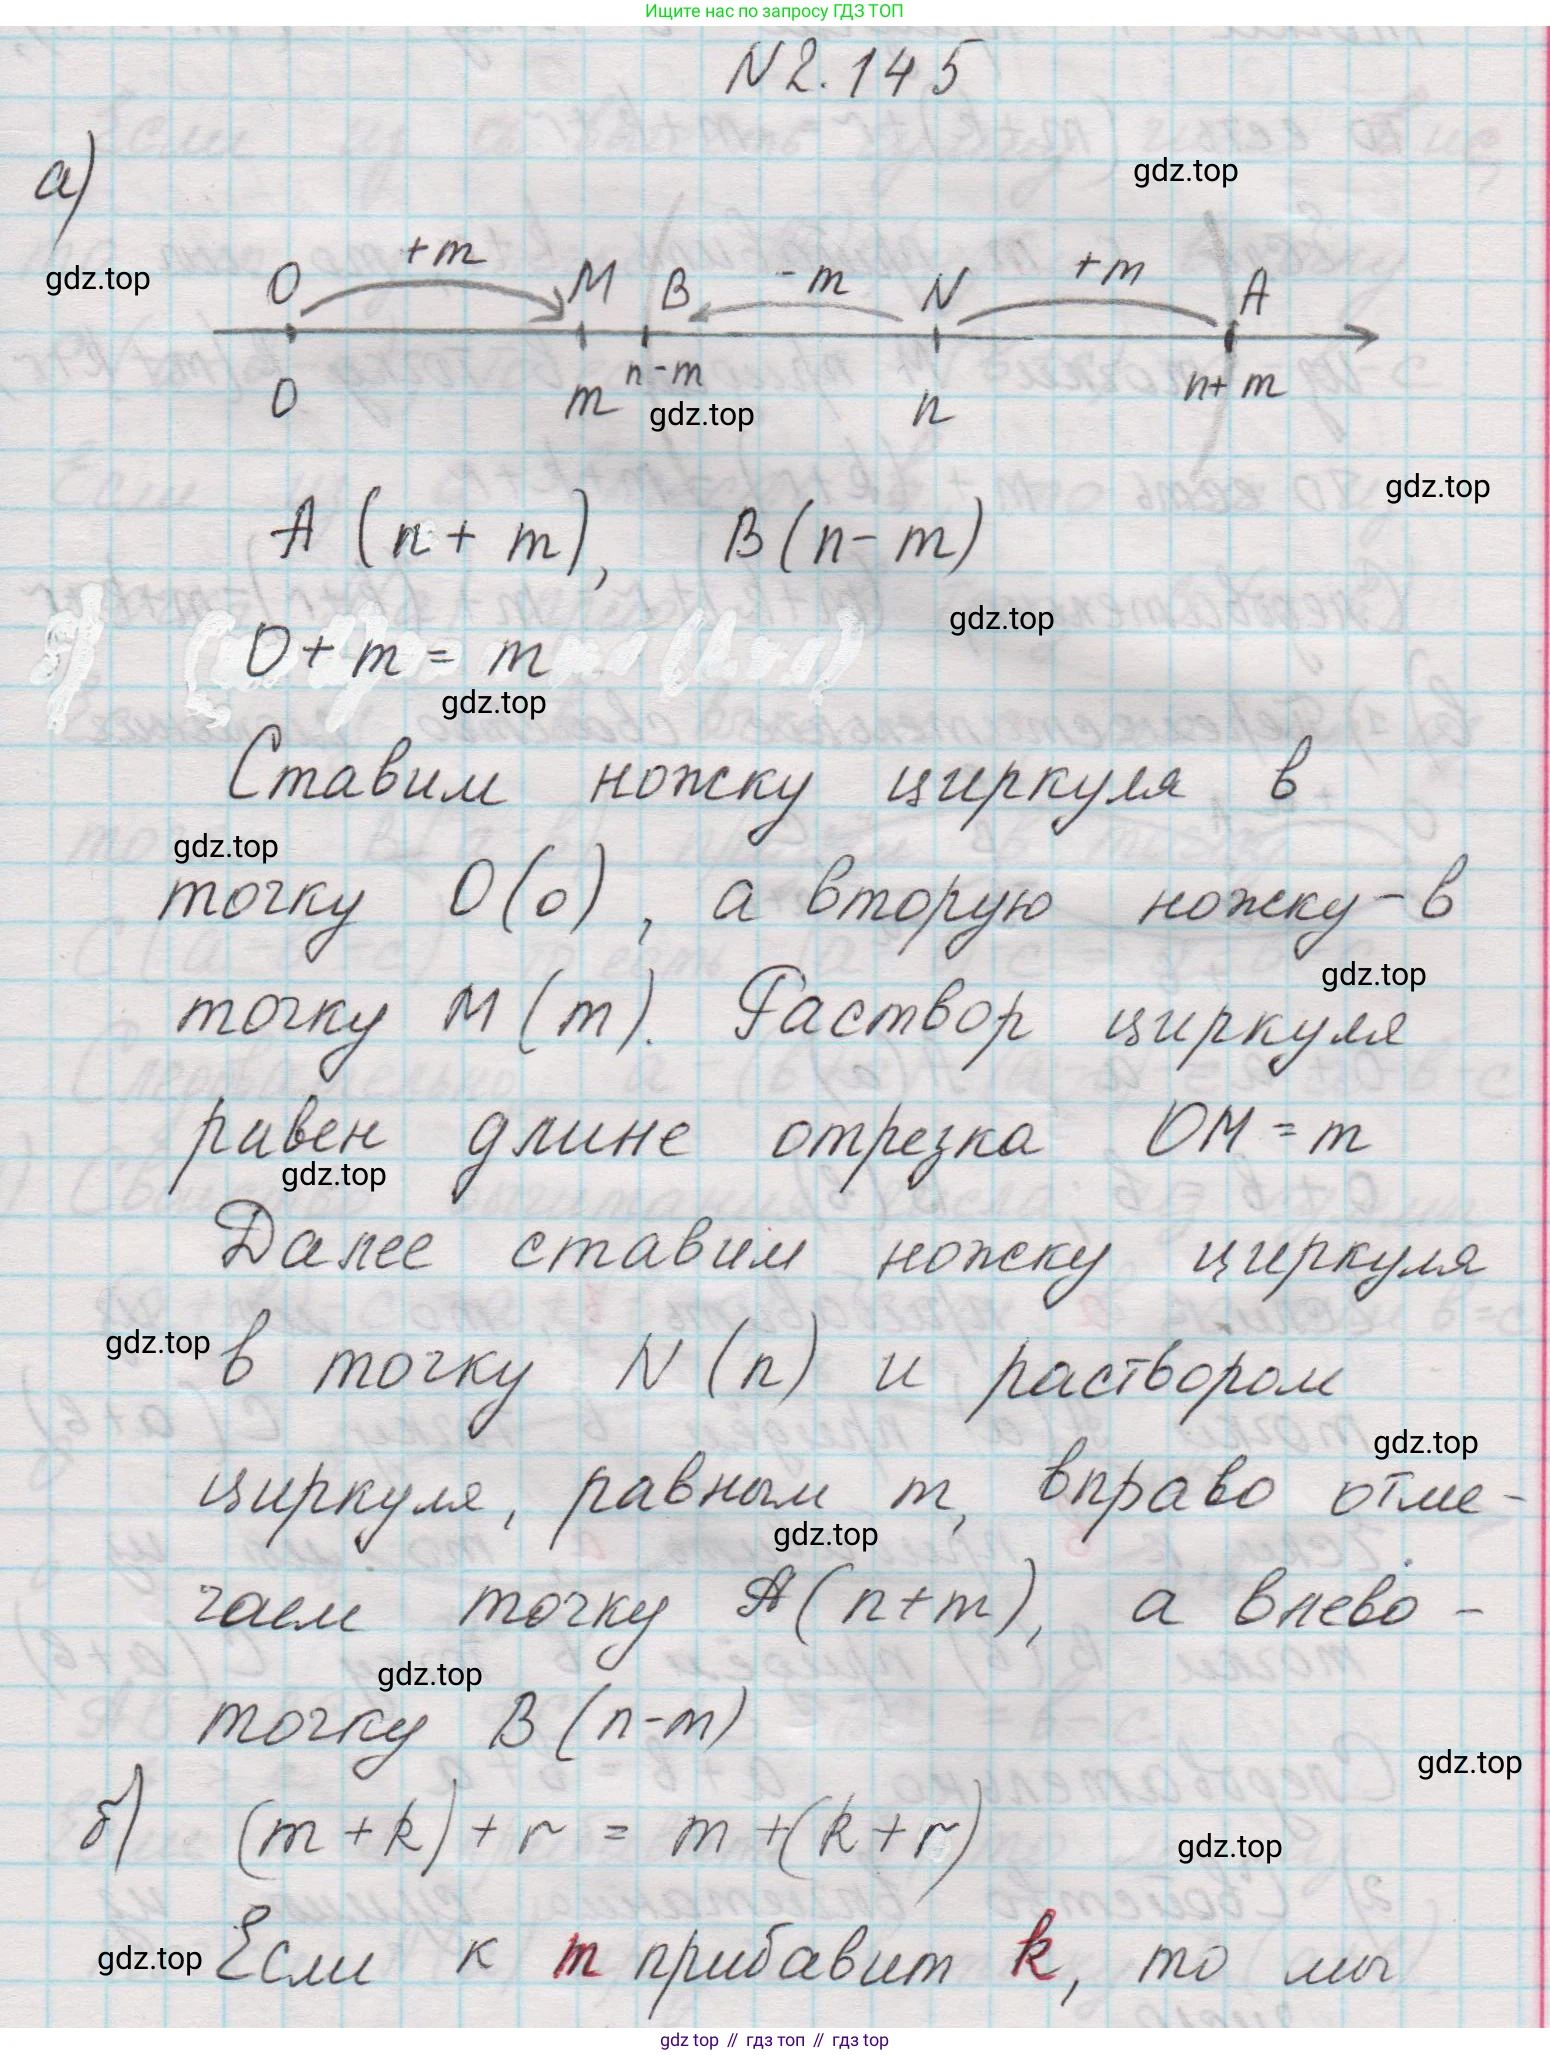 Ищите нас по запросу ГДЗ ТОП
N 2.145
gdz.top
а)
gdz.top
+m
O M B -m N +m A
0 m n-m n n+m
gdz.top
gdz.top
A (n+m), B(n-m)
gdz.top
0+m = m
gdz.top
Ставим ножку циркуля в
gdz.top
точку O(0), а вторую ножку - в
gdz.top
точку M(m). Раствор циркуля
равен длине отрезка OM = m
gdz.top
Далее ставим ножку циркуля
gdz.top
в точку N(n) и раствором
gdz.top
циркуля, равным m, вправо отме-
gdz.top
чаем точку A(n+m), а влево -
gdz.top
точку B(n-m)
gdz.top
б) (m+k)+r = m+(k+r)
gdz.top
Если к m прибавит k, то мы
gdz.top
gdz top // гдз топ // гдз top